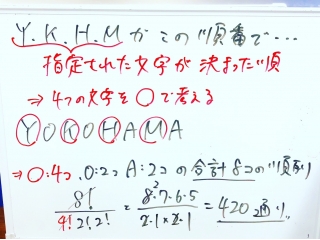 Y.K.H.Mがこの順番で…
指定された文字が決まった順
⇒4つの文字を○で考える
YOKOHAMA
⇒○:4コ、O:2コ A:2コの合計8コの順列
8!/4!2!2! = 8・7・6・5/2・1×2・1 = 420通り